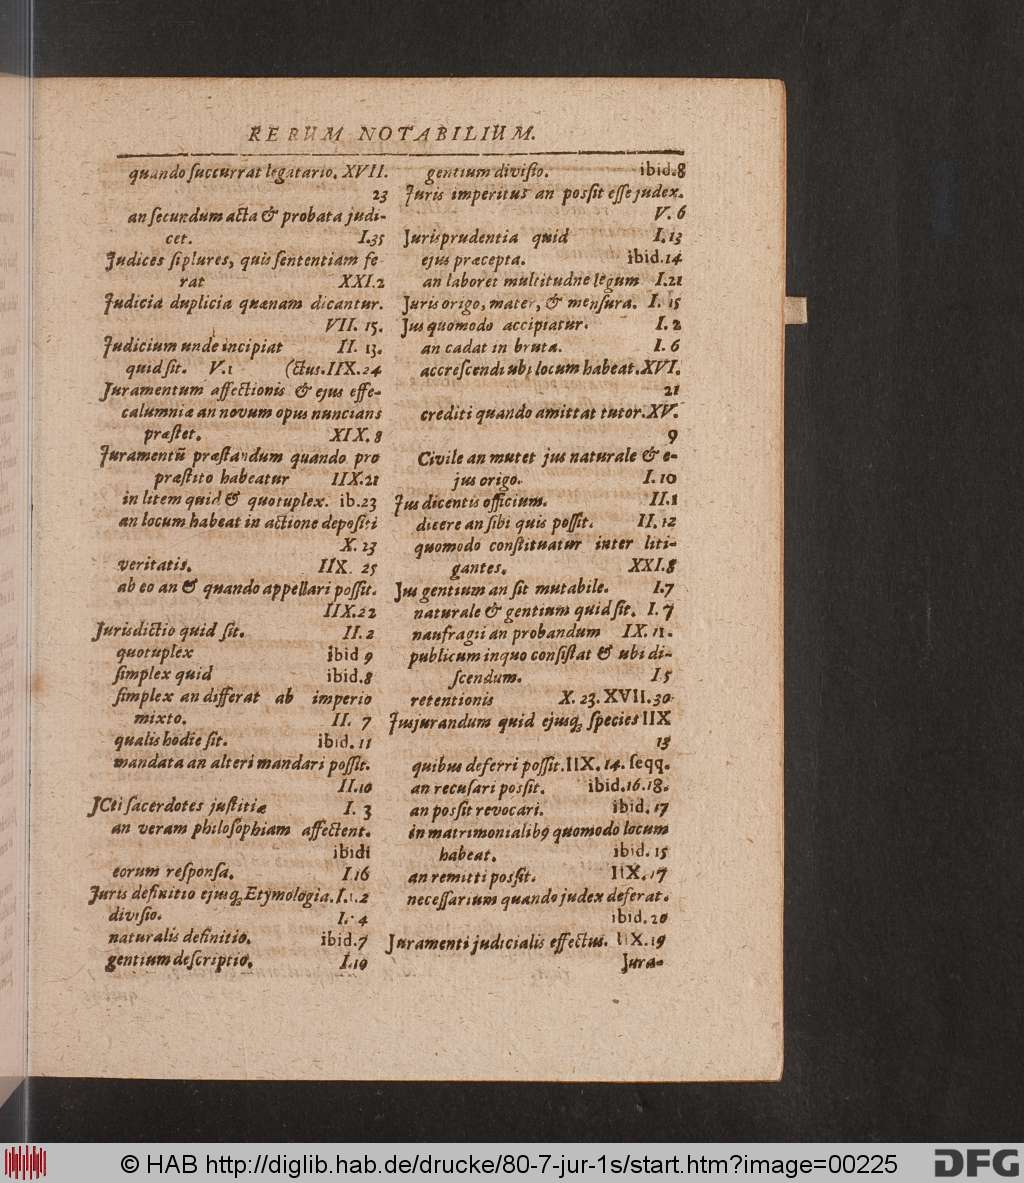 RERUM NOTABILIUM.
quando ſuccurrat legatario. XVII.
23
an ſecundum acta & probata judi-
cet. I.35
Judices ſi plures, quis ſententiam fe
rat XXI.2
Judicia duplicia quænam dicantur.
VII. 15.
Judicium unde incipiat II. 13.
quid ſit. V.1 (ctus. IIX.24
Juramentum affectionis & ejus effe-
calumniæ an novum opus nuncians
præſtet. XIX.8
Juramentũ præſtandum quando pro
præſtito habeatur IIX.21
in litem quid & quotuplex. ib.23
an locum habeat in actione depoſiti
X. 23
veritatis. IIX. 25
ab eo an & quando appellari poſſit.
IIX.22
Jurisdictio quid ſit. II. 2
quotuplex ibid 9
ſimplex quid ibid.8
ſimplex an differat ab imperio
mixto. II. 7
qualis hodie ſit. ibid. 11
mandata an alteri mandari poſſit.
II.10
JCti ſacerdotes juſtitiæ I. 3
an veram philoſophiam affectent.
ibidi
eorum reſponſa. I.16
Juris definitio ejusq; Etymologia. I.1.2
diviſio. I. 4
naturalis definitio. ibid.7
gentium deſcriptio. I.19
gentium diviſio. ibid.8
Juris imperitus an poſſit eſſe judex.
V. 6
Jurisprudentia quid I. 13
ejus præcepta. ibid.14
an laboret multitudne legum I.21
Juris origo, mater, & menſura. I. 15
Jus quomodo accipiatur. I. 2
an cadat in bruta. I. 6
accreſcendi ubi locum habeat. XVI.
21
crediti quando amittat tutor. XV.
9
Civile an mutet jus naturale & e-
jus origo. I. 10
Jus dicentis officium. II.1
dicere an ſibi quis poſſit. II. 12
quomodo conſtituatur inter liti-
gantes. XXI.8
Jus gentium an ſit mutabile. I.7
naturale & gentium quid ſit. I. 7
naufragii an probandum IX. 11.
publicum in quo conſiſtat & ubi di-
ſcendum. I5
retentionis X. 23. XVII.30
Jusjurandum quid ejusq; ſpecies IIX
13
quibus deferri poſſit. IIX. 14. ſeqq.
an recuſari poſſit. ibid.16.18.
an poſſit revocari. ibid. 17
in matrimonialib9 quomodo locum
habeat. ibid. 15
an remitti poſſit. IIX. 17
neceſſarium quando judex deferat.
ibid. 20
Juramenti judicialis effectus. IIX.19
Jura-
© HAB http://diglib.hab.de/drucke/80-7-jur-1s/start.htm?image=00225
DFG